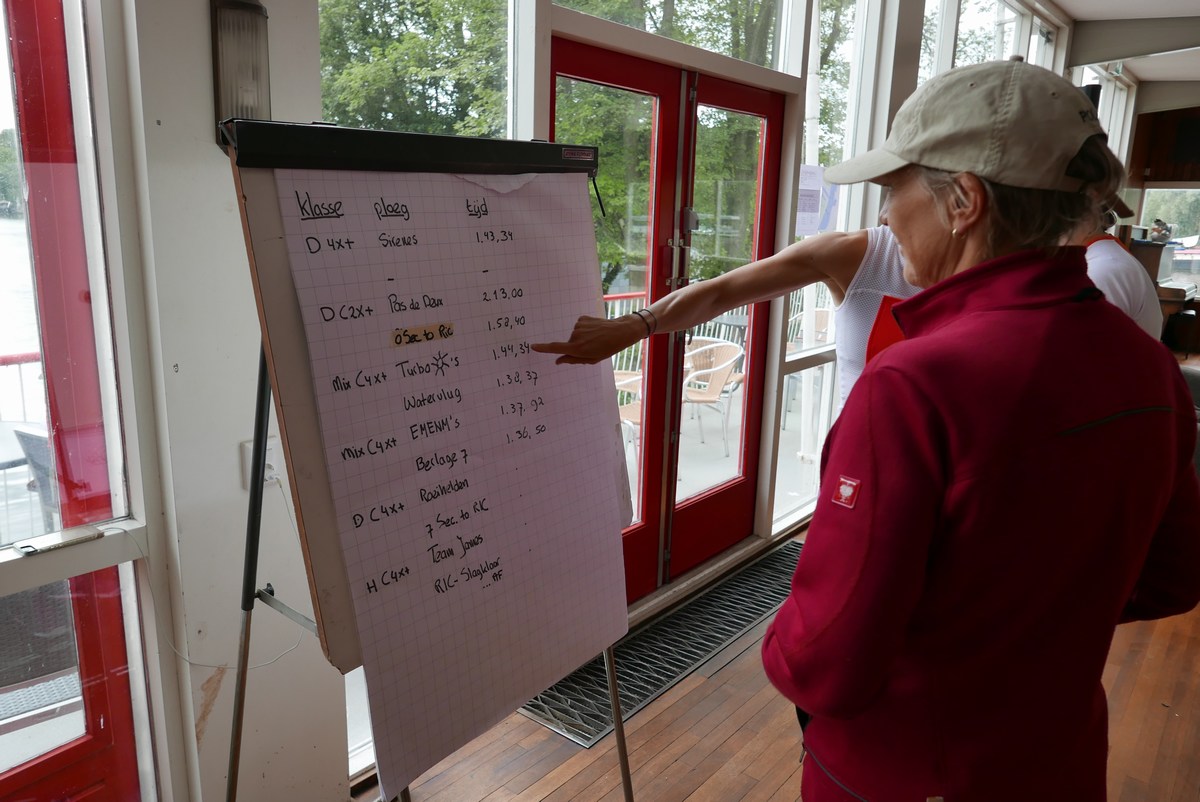 klasse ploeg tijd
D 4x+ Sirenes 1.43,34
- -
D C2x+ Pas de Deux 2.13,00
ö Sec. to RIC 1.58,40
Mix C4x+ Turbo 's 1.44,34
Watervlug 1.38,37
mix C4x+ EMENM's 1.37.92
Beslage 7 1.36,50
D C4x+ Roeihelden
7 Sec. to RIC
H C4x+ Team James
RIC-Slagklaar
...AF